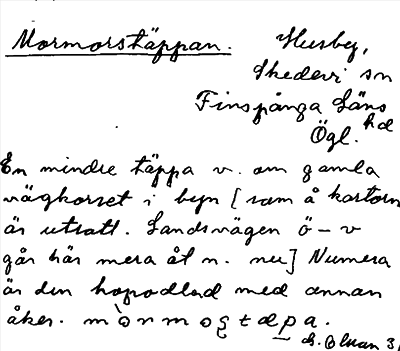 Mormorstäppan.
Husby,
Skedevi sn
Finspånga Läns
hd
Ögl.
En mindre täppa v. om gamla
vägkorset i byn [som å kartorn
är utsatt. Landsvägen ö – v
går här mera åt n. nu] Numera
är den hopodlad med annan
åker.